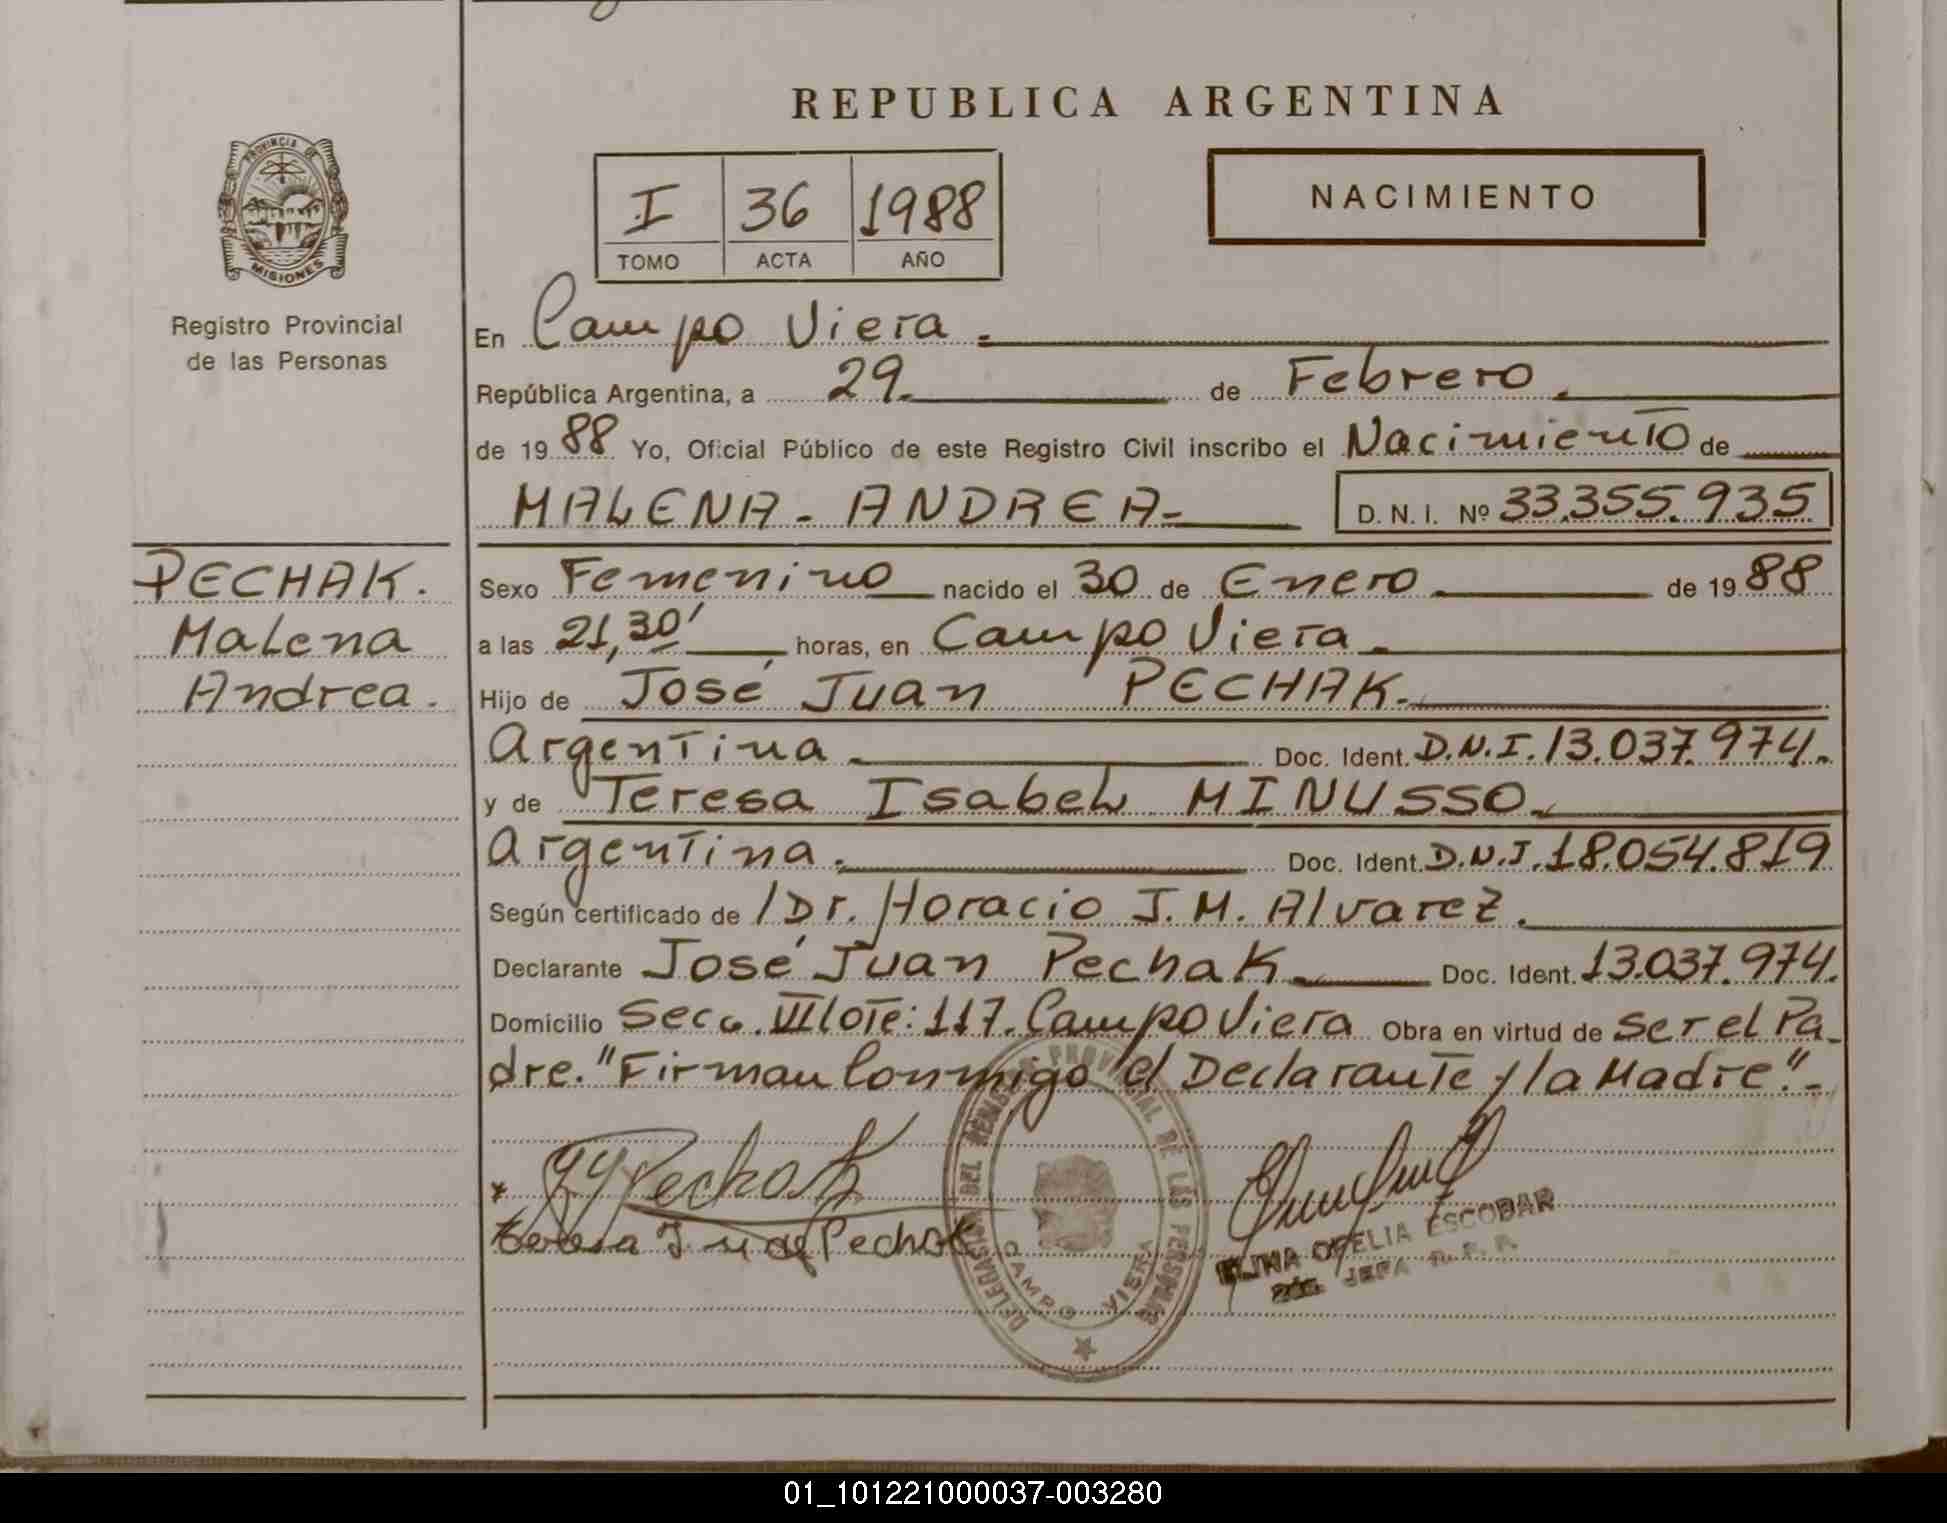 REPUBLICA ARGENTINA
PROVINCIA DE
MISIONES
Registro Provincial
de las Personas
I 36 1988
TOMO ACTA AÑO
NACIMIENTO
En Campo Viera.
República Argentina, a 29. de Febrero.
de 1988 Yo, Oficial Público de este Registro Civil inscribo el Nacimiento de
MALENA - ANDREA- D. N. I. Nº 33.355.935
PECHAK.
Malena
Andrea.
Sexo Femenino nacido el 30 de Enero de 1988
a las 21,30' horas, en Campo Viera.
Hijo de José Juan PECHAK.
Argentina Doc. Ident. D.N.I. 13.037.974.
y de Teresa Isabel MINUSSO.
Argentina. Doc. Ident. D.N.I. 18.054.819
Según certificado de /Dr. Horacio J. M. Alvarez.
Declarante José Juan Pechak Doc. Ident. 13.037.974.
Domicilio Secc. VII lote: 117. Campo Viera Obra en virtud de ser el Pa-
dre. "Firman Conmigo el Declarante y la Madre".-
Pechak
Teresa de Pechak
DELEGACION DEL REGISTRO PROVINCIAL DE LAS PERSONAS
CAMPO VIERA
OFELIA ESCOBAR
JEFA R. P. P.
01_101221000037-003280